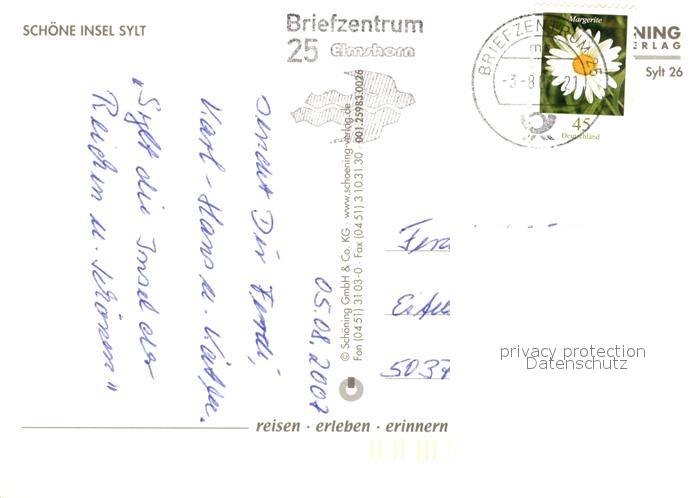 SCHÖNE INSEL SYLT
Briefzentrum
25 Elmshorn
BRIEFZENTRUM 25
Margerite
45
Deutschland
NING
ERLAG
Sylt 26
"Sylt die Insel der
Reichen u. Schönen"
sendet Dir Ferdi,
Karl-Hans u. Käthe.
05.08.2007
© Schöning GmbH & Co. KG · www.schoening-verlag.de
Fon (04 51) 31 03-0 · Fax (04 51) 3 10 31 30 · 001.25983.0026
5037
privacy protection
Datenschutz
reisen · erleben · erinnern